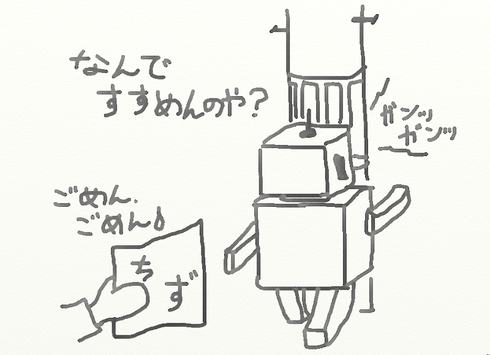 なんで
すすめんのや?
ガンッ
ガンッ
ごめん.
ごめん♪
ち
ず